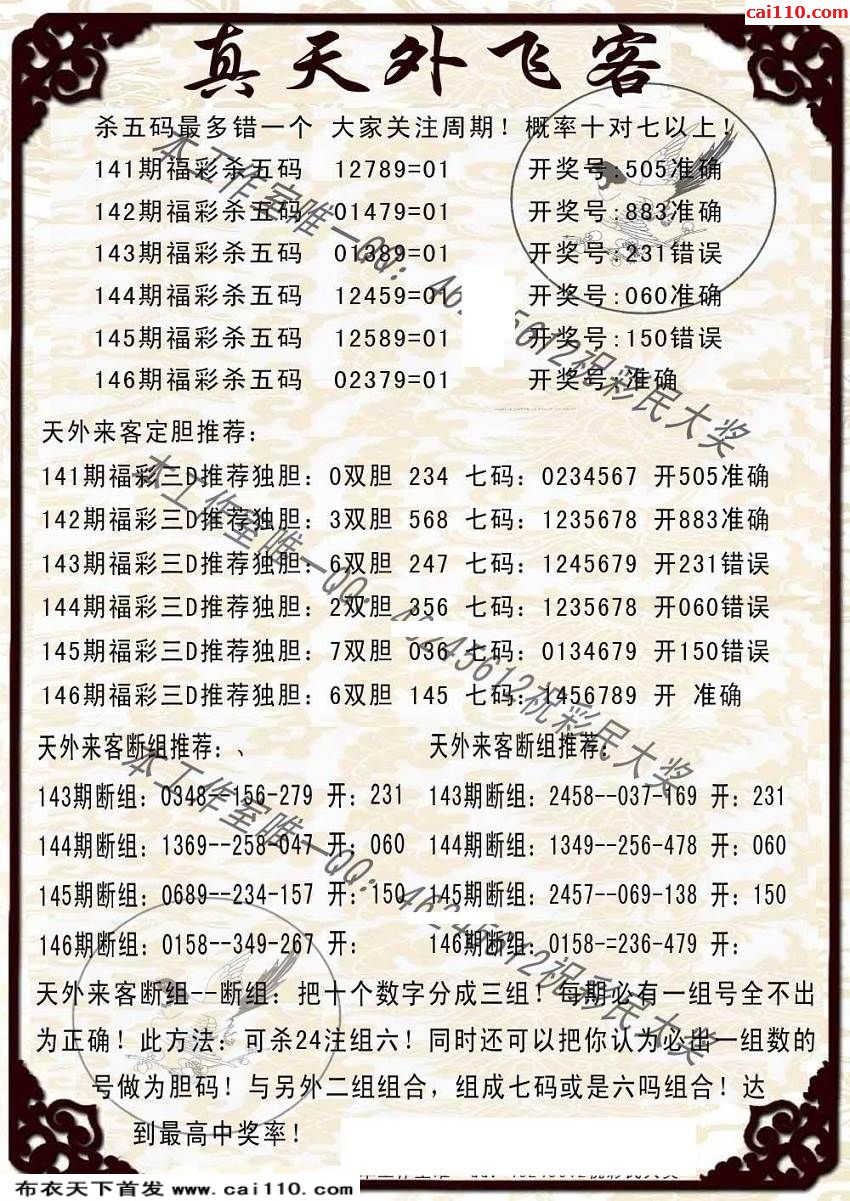 cai110.com
真天外飞客
杀五码最多错一个 大家关注周期！概率十对七以上！
141期福彩杀五码 12789=01 开奖号:505准确
142期福彩杀五码 01479=01 开奖号:883准确
143期福彩杀五码 01389=01 开奖号:231错误
144期福彩杀五码 12459=01 开奖号:060准确
145期福彩杀五码 12589=01 开奖号:150错误
146期福彩杀五码 02379=01 开奖号:准确
天外来客定胆推荐：
141期福彩三D推荐独胆：0双胆 234 七码：0234567 开505准确
142期福彩三D推荐独胆：3双胆 568 七码：1235678 开883准确
143期福彩三D推荐独胆：6双胆 247 七码：1245679 开231错误
144期福彩三D推荐独胆：2双胆 356 七码：1235678 开060错误
145期福彩三D推荐独胆：7双胆 036 七码：0134679 开150错误
146期福彩三D推荐独胆：6双胆 145 七码：1456789 开 准确
天外来客断组推荐：、 天外来客断组推荐：
143期断组：0348--156-279 开：231 143期断组：2458--037-169 开：231
144期断组：1369--258-047 开：060 144期断组：1349--256-478 开：060
145期断组：0689--234-157 开：150 145期断组：2457--069-138 开：150
146期断组：0158--349-267 开： 146期断组：0158-=236-479 开：
天外来客断组--断组：把十个数字分成三组！每期必有一组号全不出
为正确！此方法：可杀24注组六！同时还可以把你认为必出一组数的
号做为胆码！与另外二组组合，组成七码或是六吗组合！达
到最高中奖率！
本工作室唯一QQ：46245612祝彩民大奖
布衣天下首发 www.cai110.com